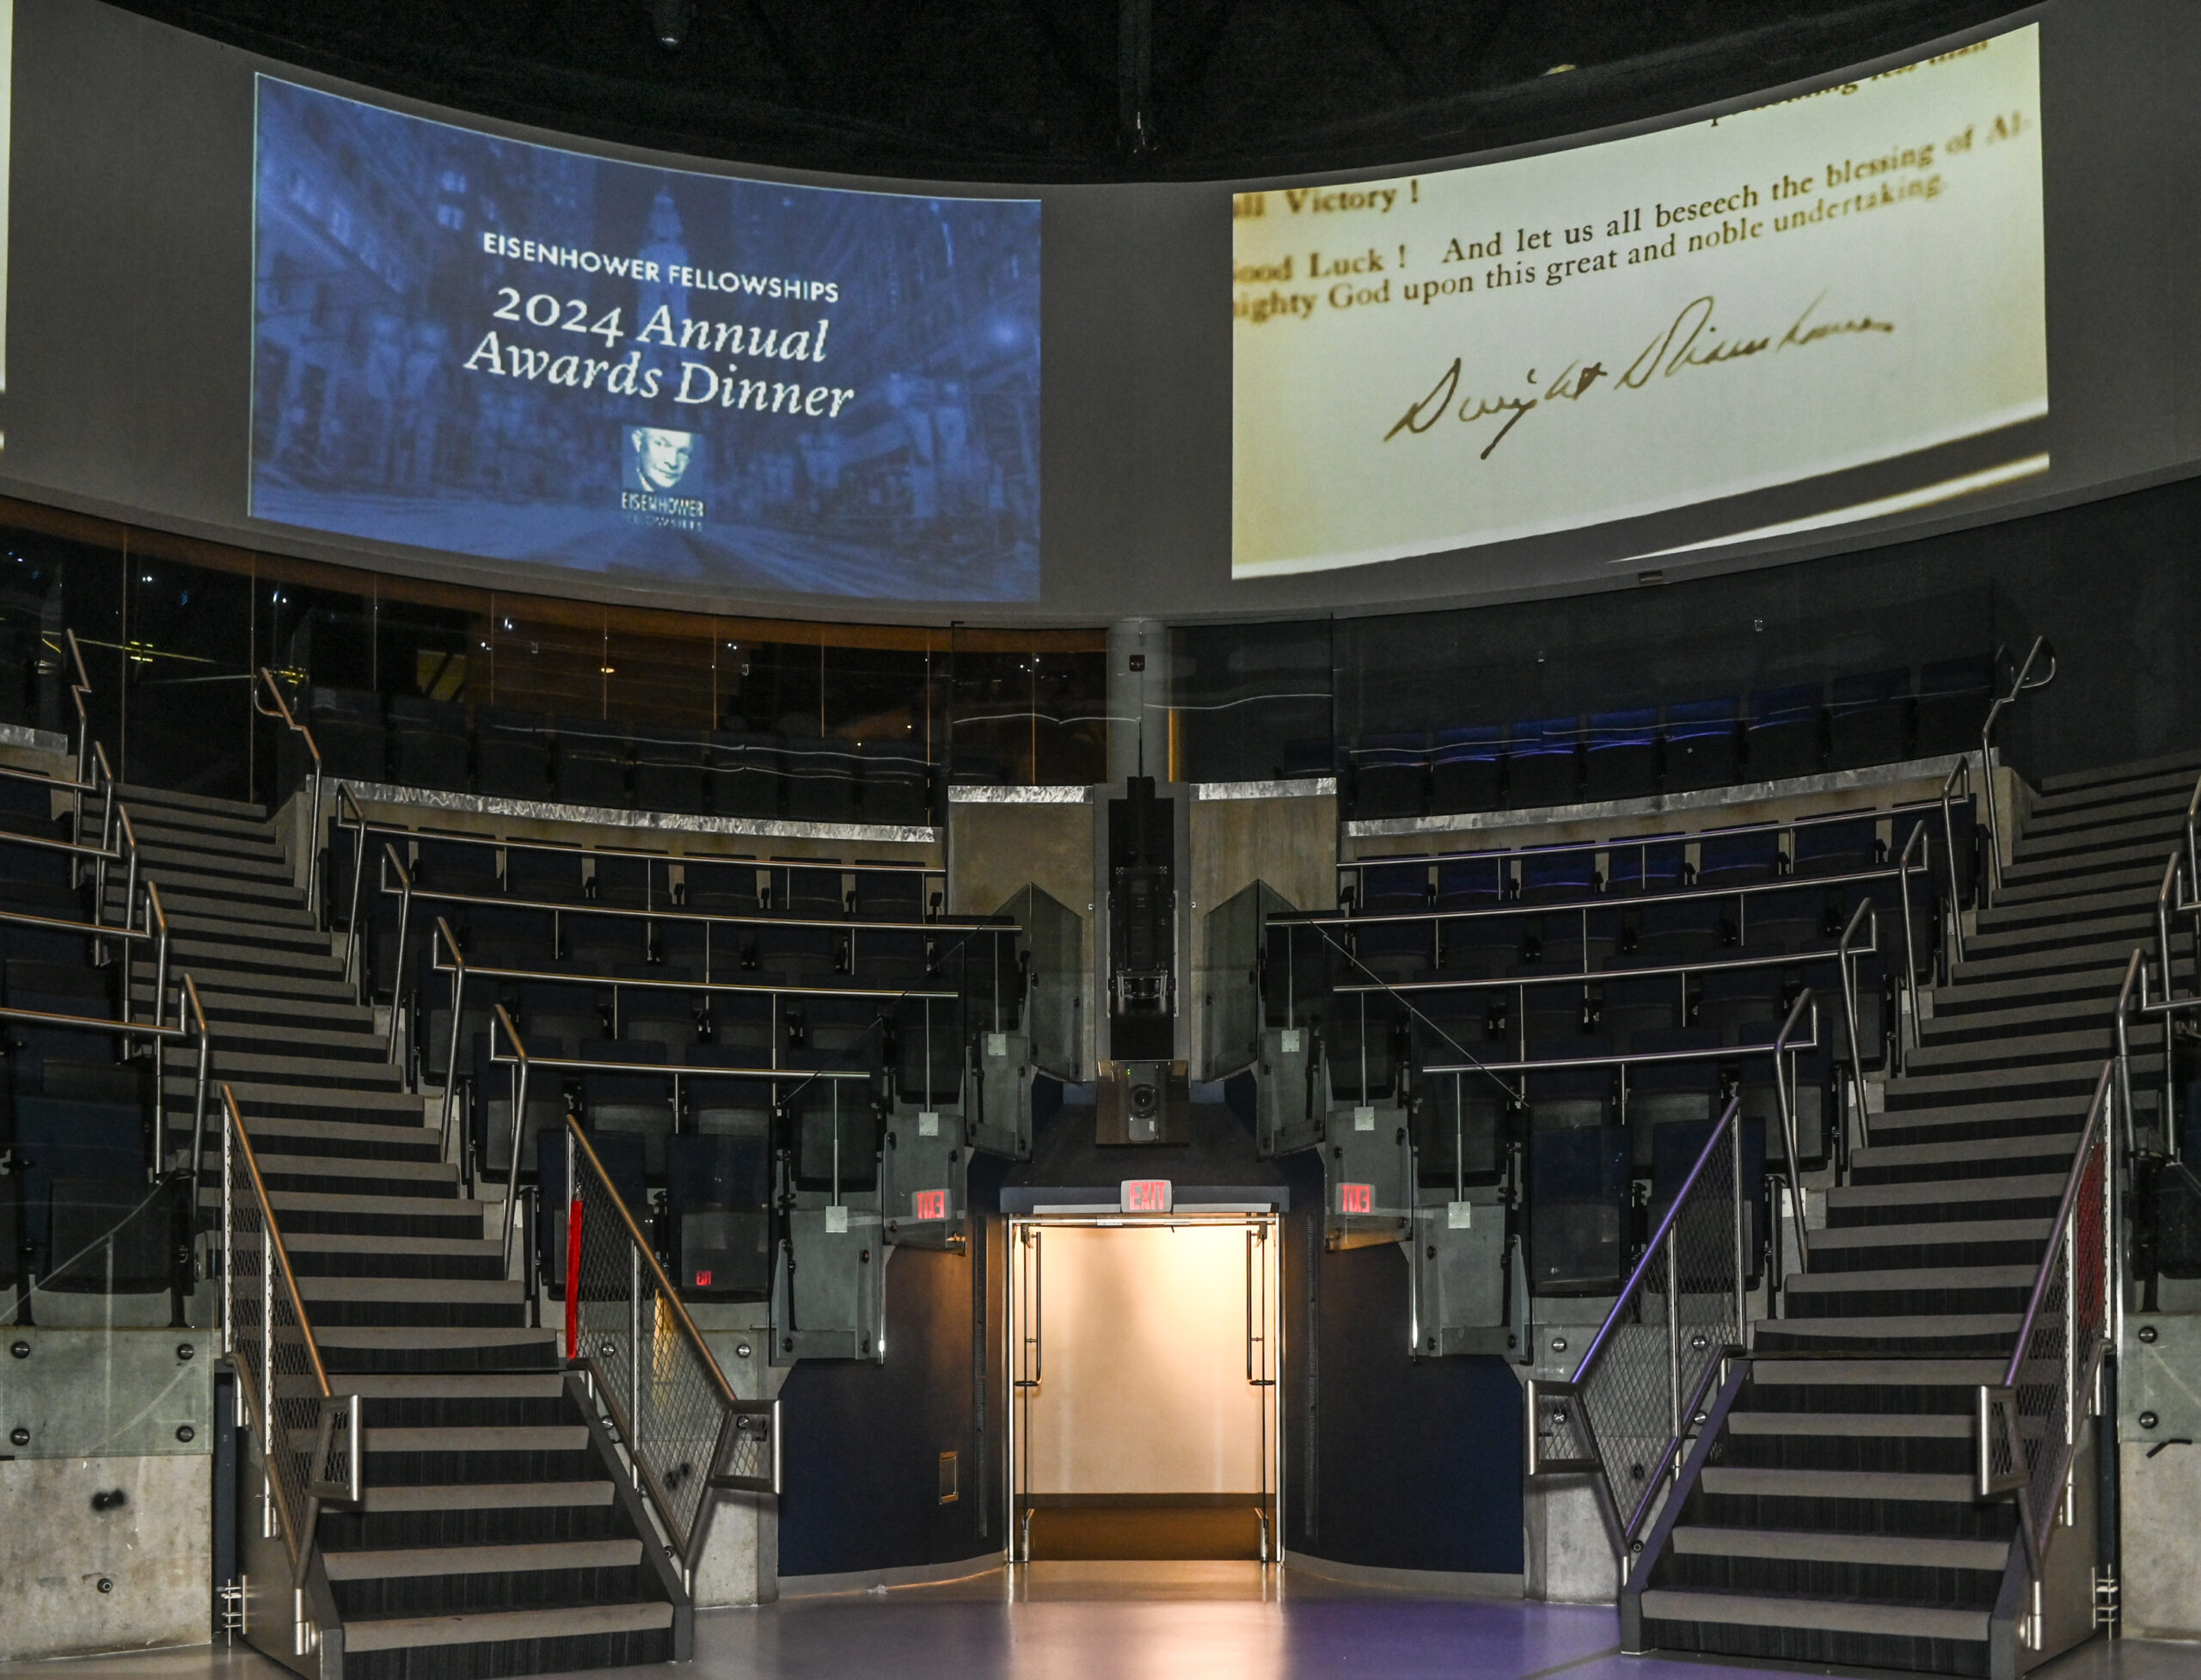 EISENHOWER FELLOWSHIPS
2024 Annual
Awards Dinner
EISENHOWER
FELLOWSHIPS
less than
ull Victory !
ood Luck ! And let us all beseech the blessing of Al-
mighty God upon this great and noble undertaking.
Dwight D Eisenhower
EXIT
EXIT
EXIT
EXIT